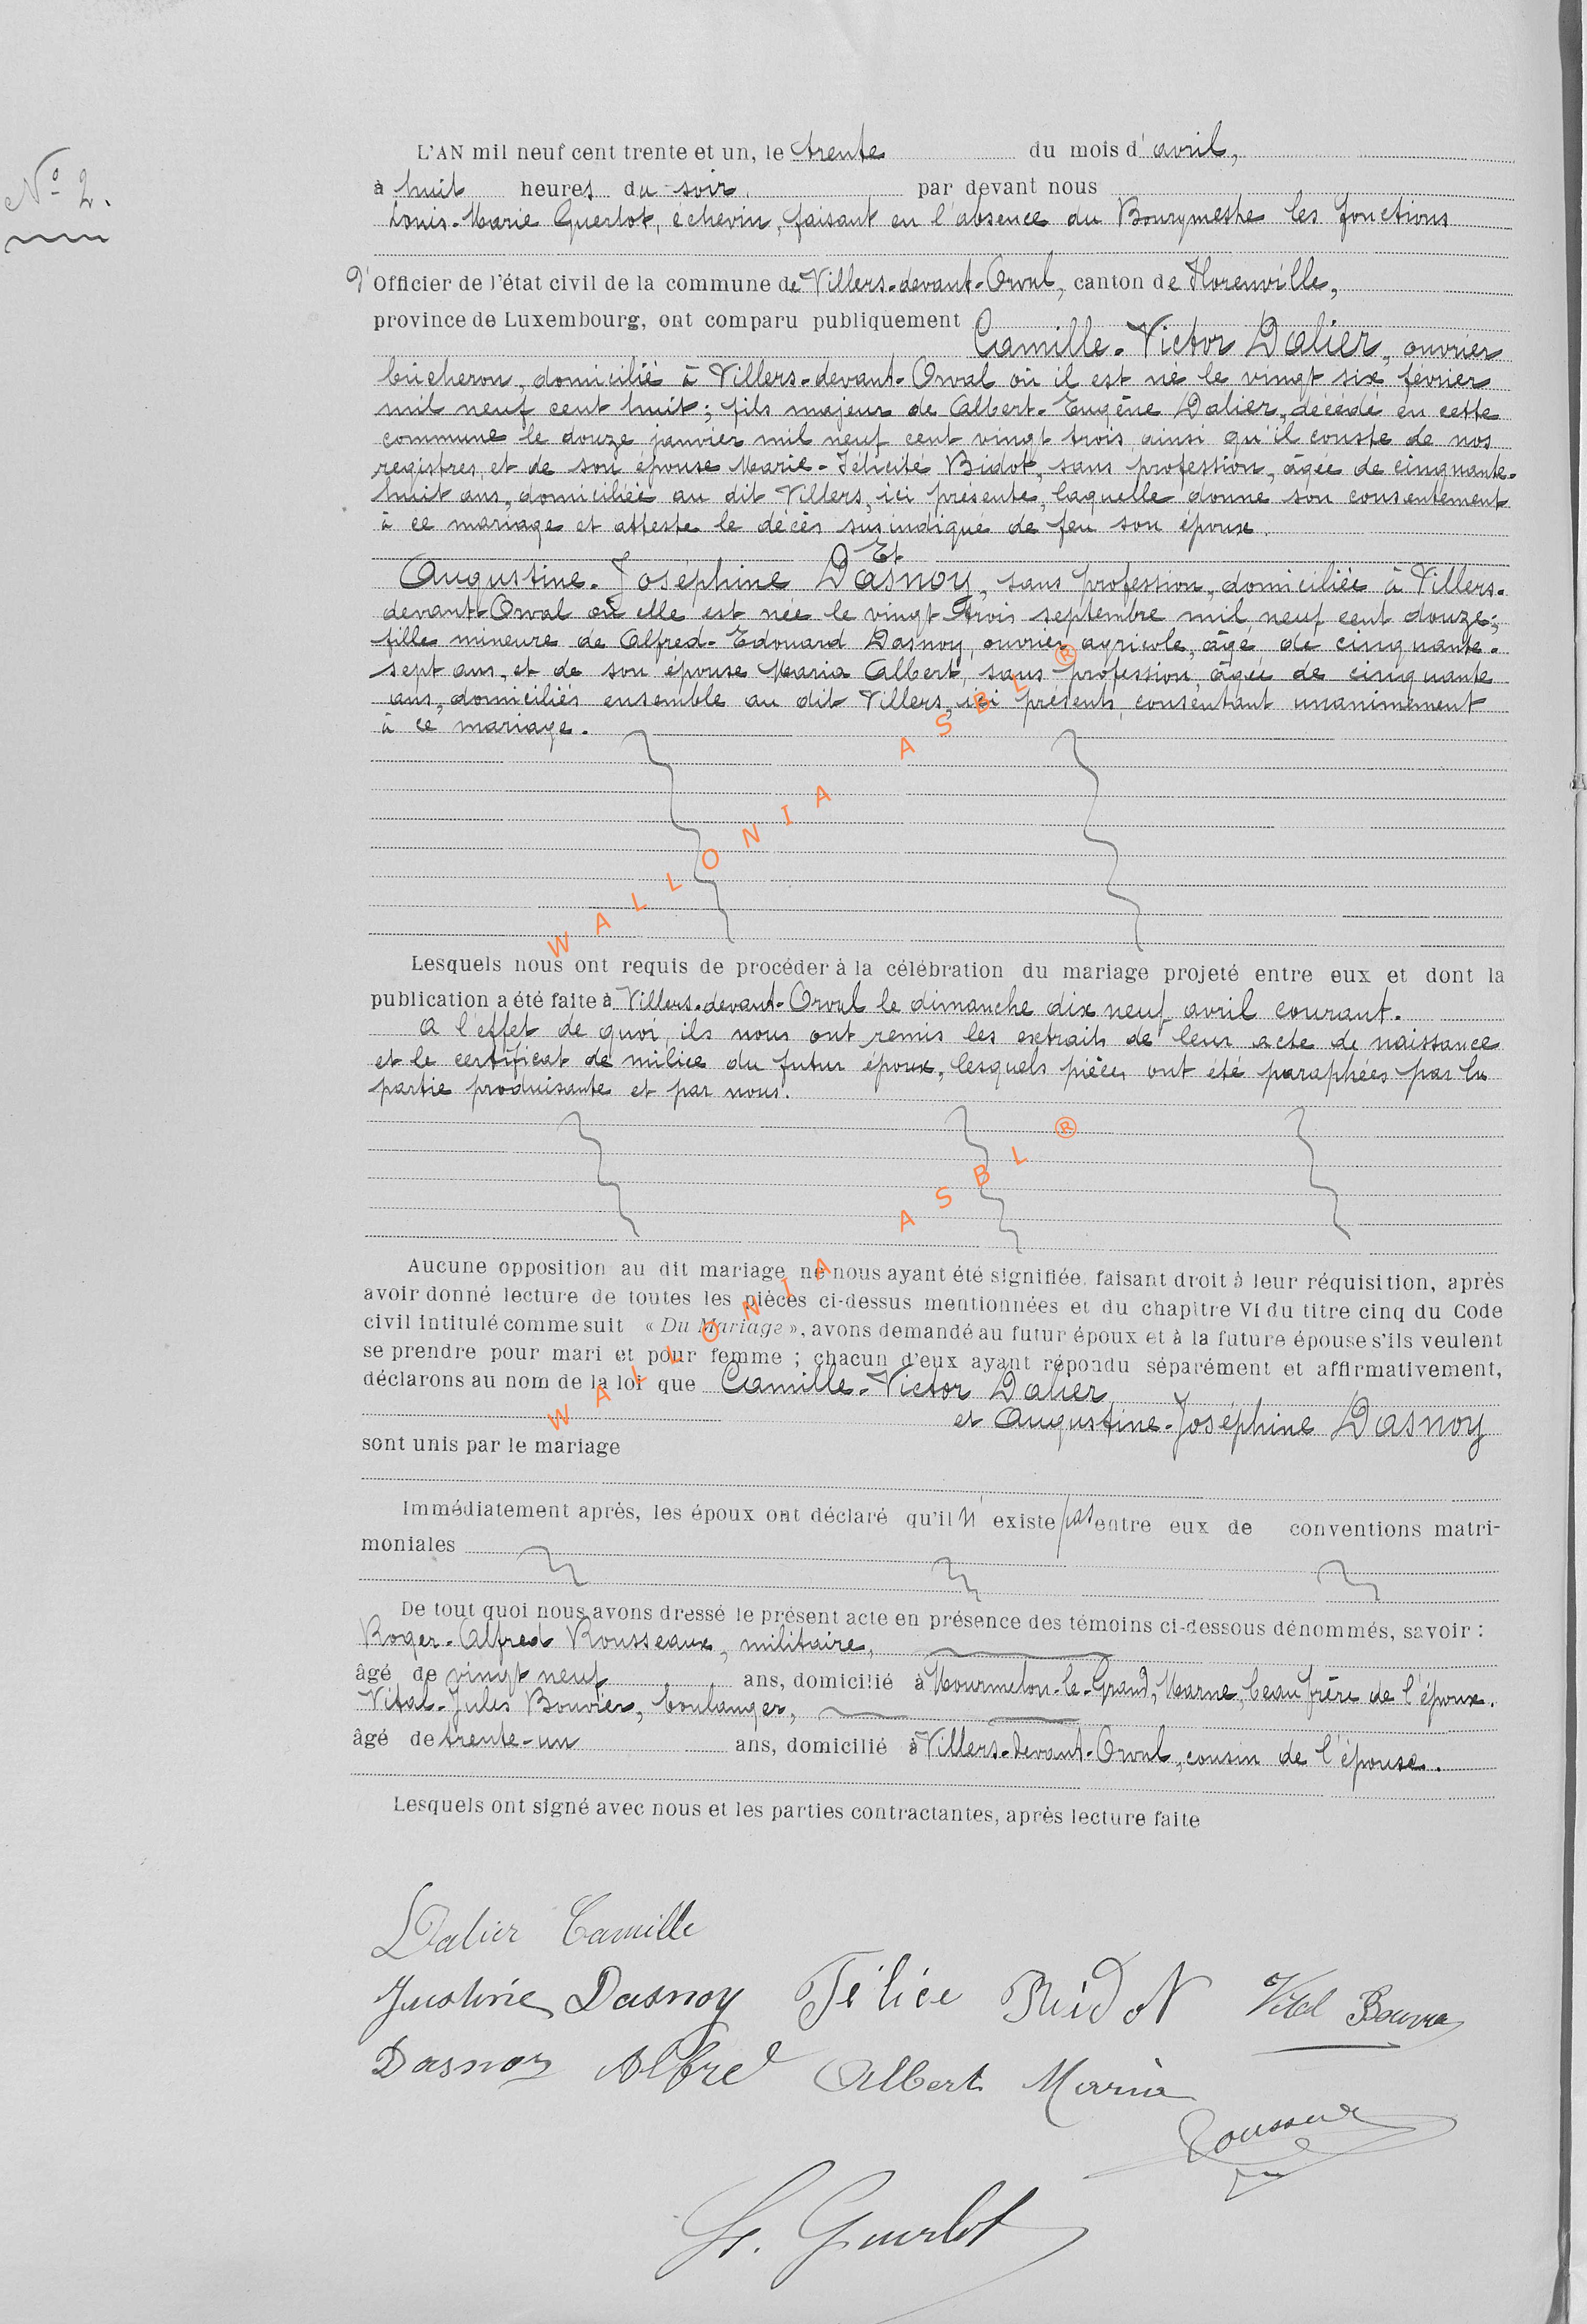 N° 2.
L'AN mil neuf cent trente et un, le trente du mois d'avril,
à huit heures du soir, par devant nous
Louis-Marie Guerlot, échevin, faisant en l'absence du Bourgmestre les fonctions
d'Officier de l'état civil de la commune de Villers-devant-Orval, canton de Florenville,
province de Luxembourg, ont comparu publiquement
Camille-Victor Dalier, ouvrier
bûcheron, domicilié à Villers-devant-Orval où il est né le vingt six février
mil neuf cent huit; fils majeur de Albert-Eugène Dalier, décédé en cette
commune le douze janvier mil neuf cent vingt trois ainsi qu'il conste de nos
registres, et de son épouse Marie-Félicité Bidot, sans profession, âgée de cinquante-
huit ans, domiciliée au dit Villers, ici présente, laquelle donne son consentement
à ce mariage et atteste le décès susindiqué de feu son époux.
Et
Augustine-Joséphine Dasnoy, sans profession, domiciliée à Villers-
devant-Orval où elle est née le vingt-trois septembre mil neuf cent douze;
fille mineure de Alfred-Edouard Dasnoy, ouvrier agricole, âgé de cinquante-
sept ans, et de son épouse Maria Albert, sans profession, âgée de cinquante
ans, domiciliés ensemble au dit Villers, ici présents, consentant unanimement
à ce mariage.
WALLONIA ASBL ®
Lesquels nous ont requis de procéder à la célébration du mariage projeté entre eux et dont la
publication a été faite à Villers-devant-Orval le dimanche dix neuf avril courant.
A l'effet de quoi, ils nous ont remis les extraits de leur acte de naissance
et le certificat de milice du futur époux, lesquels pièces ont été paraphées par la
partie produisante et par nous.
WALLONIA ASBL ®
Aucune opposition au dit mariage ne nous ayant été signifiée, faisant droit à leur réquisition, après
avoir donné lecture de toutes les pièces ci-dessus mentionnées et du chapitre VI du titre cinq du Code
civil intitulé comme suit « Du Mariage », avons demandé au futur époux et à la future épouse s'ils veulent
se prendre pour mari et pour femme ; chacun d'eux ayant répondu séparément et affirmativement,
déclarons au nom de la loi que Camille-Victor Dalier
et Augustine-Joséphine Dasnoy
sont unis par le mariage
Immédiatement après, les époux ont déclaré qu'il n'existe pas entre eux de conventions matri-
moniales
De tout quoi nous avons dressé le présent acte en présence des témoins ci-dessous dénommés, savoir :
Roger-Alfred Rousseaux, militaire,
âgé de vingt neuf ans, domicilié à Mourmelon-le-Grand, Marne, beau frère de l'époux.
Vital-Jules Bouvier, boulanger,
âgé de trente-un ans, domicilié à Villers-devant-Orval, cousin de l'épouse.
Lesquels ont signé avec nous et les parties contractantes, après lecture faite
Dalier Camille
Justine Dasnoy Félice Bidot Vital
Dasnoy Alfred Albert Maria
L. Guerlot